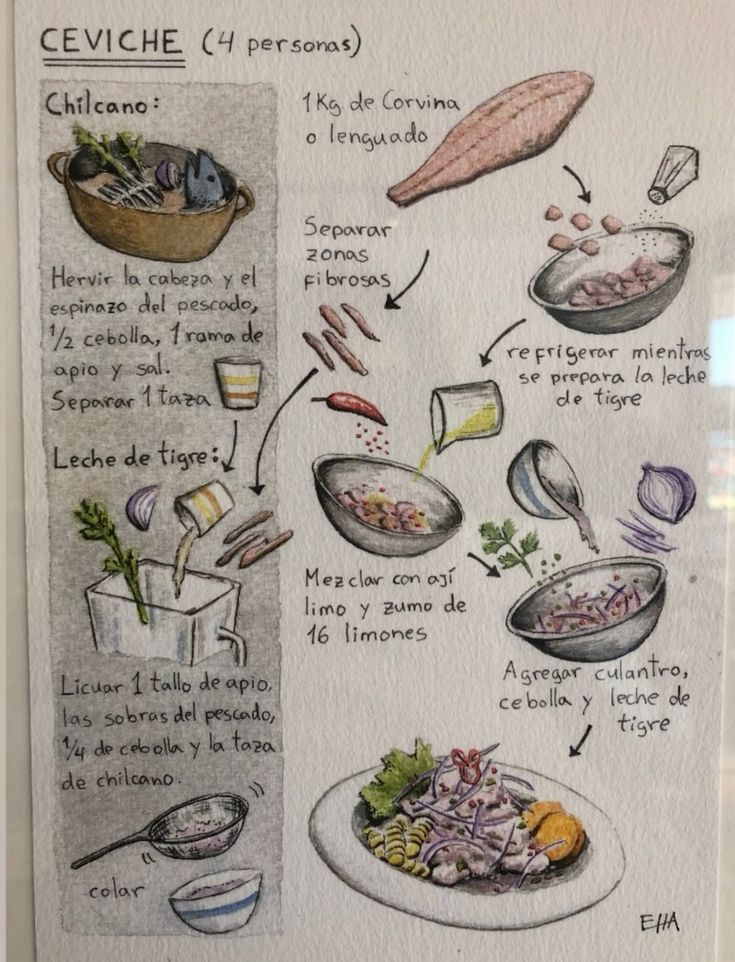 CEVICHE (4 personas)
Chilcano:
Hervir la cabeza y el
espinazo del pescado,
1/2 cebolla, 1 rama de
apio y sal.
Separar 1 taza
Leche de tigre:
Licuar 1 tallo de apio,
las sobras del pescado,
1/4 de cebolla y la taza
de chilcano.
colar
1Kg de Corvina
o lenguado
Separar
zonas
fibrosas
refrigerar mientras
se prepara la leche
de tigre
Mezclar con ají
limo y zumo de
16 limones
Agregar culantro,
cebolla y leche de
tigre